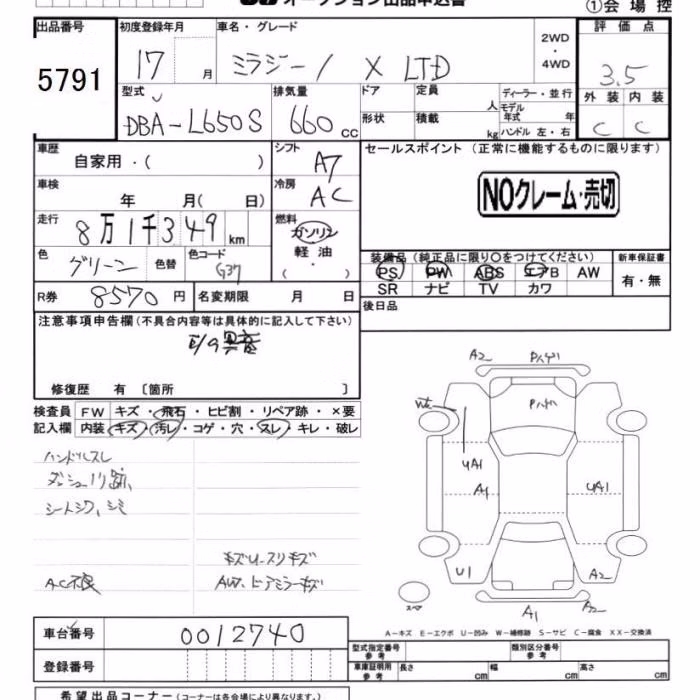 オークション出品申込書 ①会場控
出品番号 初度登録年月 車名・グレード 2WD・4WD 評価点
5791 17 月 ミラジーノ X LTD 3.5
型式 排気量 ドア 定員 人 ディーラー・並行 外装 内装
DBA-L650S 660cc 形状 積載 kg モデル年式 年 ハンドル 左・右 C C
車歴 自家用・( ) シフト A7 セールスポイント (正常に機能するものに限ります)
車検 年 月( 日) 冷房 AC NOクレーム・売切
走行 8万1千349km 燃料 ガソリン 軽油 ( ・ )
色 グリーン 色替 色コード G37 装備品 (純正品に限り○をつけてください) 新車保証書
PS PW ABS エアB AW 有・無
SR ナビ TV カワ
R券 8570円 名変期限 月 日 後日品
注意事項申告欄 (不具合内容等は具体的に記入して下さい)
異音
修復歴 有 〔箇所 〕
検査員 FW キズ・飛石・ヒビ割・リペア跡・×要
記入欄 内装 キズ・汚レ・コゲ・穴・スレ・キレ・破レ
ハンドルスレ
ダッシュノリ跡、
シートシワ、シミ
AC不良
AW、ドアミラーキズ
A2
UA1
A1
UA1
U1
A2
A1
A2
スペア
A-キズ E-エクボ U-凹み W-補修跡 S-サビ C-腐食 XX-交換済
車台番号 0012740 型式指定番号 参考 類別区分番号 参考
登録番号 車庫証明用 参考 長さ cm 幅 cm 高さ cm
希望出品コーナー (コーナーは各会場により異なります。)